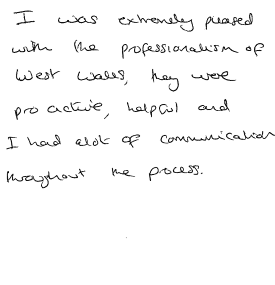 I was extremely pleased
with the professionalism of
West Wales, they were
proactive, helpful and
I had alot of communication
throughout the process.